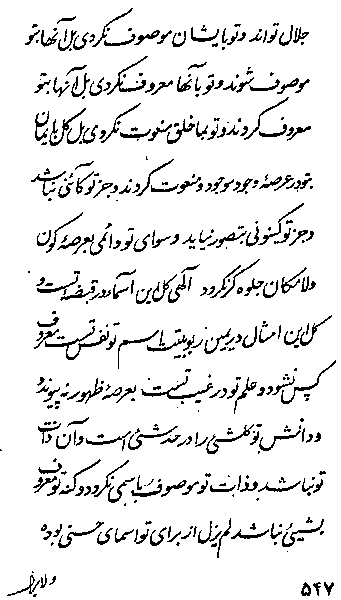 جلال تواند و تو بایشان موصوف نکردی بل آنها بتو
موصوف شوند و تو بآنها معروف نکردی بل آنها بتو
معروف کردند و تو بما خلق منعوت نکردی بل کل بایمان
بتو در عرصهٔ وجود موجود و منعوت کردند و جز تو کائنی نباشد
و جز تو کینونی بتصور نیاید و سوای تو دائمی بعرصهٔ کون
و لا مکان جلوه گر نکرود آلهی کل این اسماء در قبضهٔ تست و
کل این امثال در یمین ربوبیت اسم تو نفس تست معروف
کس نشود و علم تو در غیب تست بعرصهٔ ظهور نه پیوندد
و دانش تو کلشئی را در حد شئی است و آن ذات
تو نباشد و ذات تو موصوف باسمی نکردد و کنه تو معروف
بشیئی نباشد لم یزل از برای تو اسمای حسنی بوده
ولایزال
۵۴۷